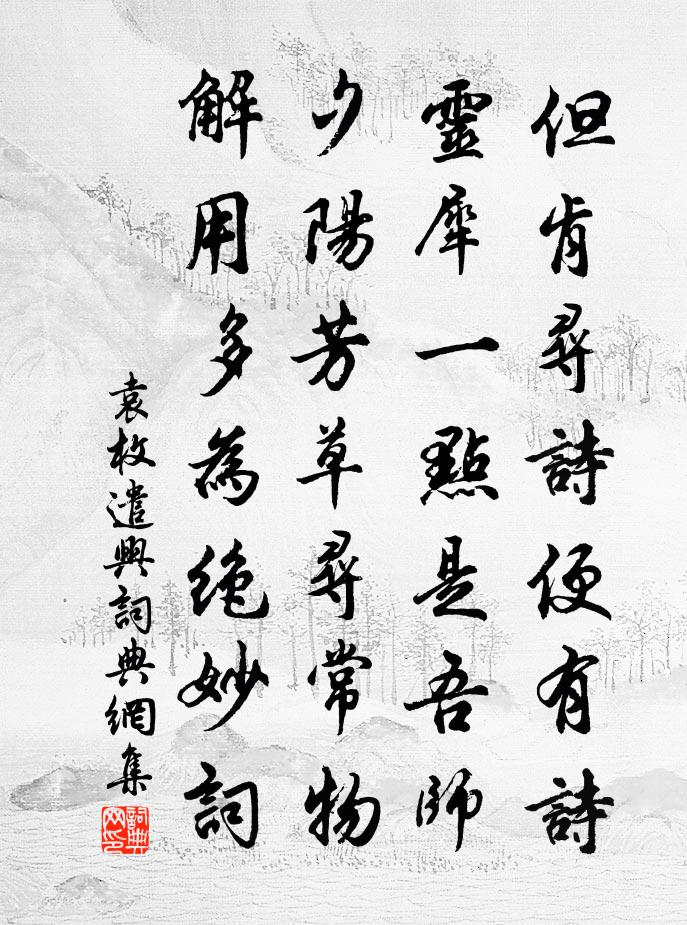 但肯尋詩便有詩
靈犀一點是吾師
夕陽芳草尋常物
解用多為絕妙詞
袁枚遣興詞典網集
詞典网印